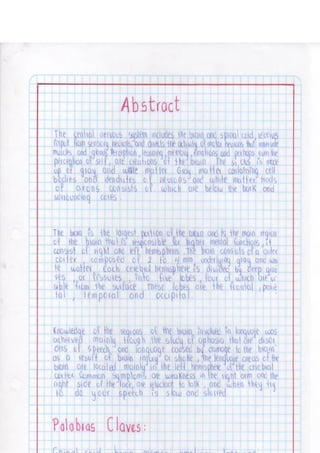 Abstract
The central nervous system includes the brain and spinal cord, receives
input from sensory neurons, and directs the activity of motor neurons that innervate
muscles and glands. Perception, learning, memory, emotions and perhaps even the
perception of self, are creations of the brain. The is CNS is made
up of gray and white matter. Gray matter containing cell
bodies and dendrites of neurons and white matter
of axons consists of which are below the bark and
surrounding cores.
The brain is the largest portion of the brain and is the main region
of the brain that is responsible for higher mental functions, it
consist of right and left hemispheres. The brain consists of a outer
cortex, composed of 2 to 4 mm underlying gray and whi
te matter. Each cerebral hemisphere is divided by deep groo
ves, or fissures, into five lobes, four of which are vi
sible from the surface. These lobes are the frontal, parie
tal, temporal and occipital.
Knowledge of the regions of the brain involve in language was
achieved mainly through the study of aphasia that are disor
ders of speech and language caused by damage to the brain
as a result of brain injury or stroke, the language areas of the
brain are located mainly in the left hemisphere of the cerebral
cortex. Common symptoms are weakness in the right arm and the
right side of the face, are reluctant to talk, and when they try
to do your speech is slow and slurred.
Palabras Claves: